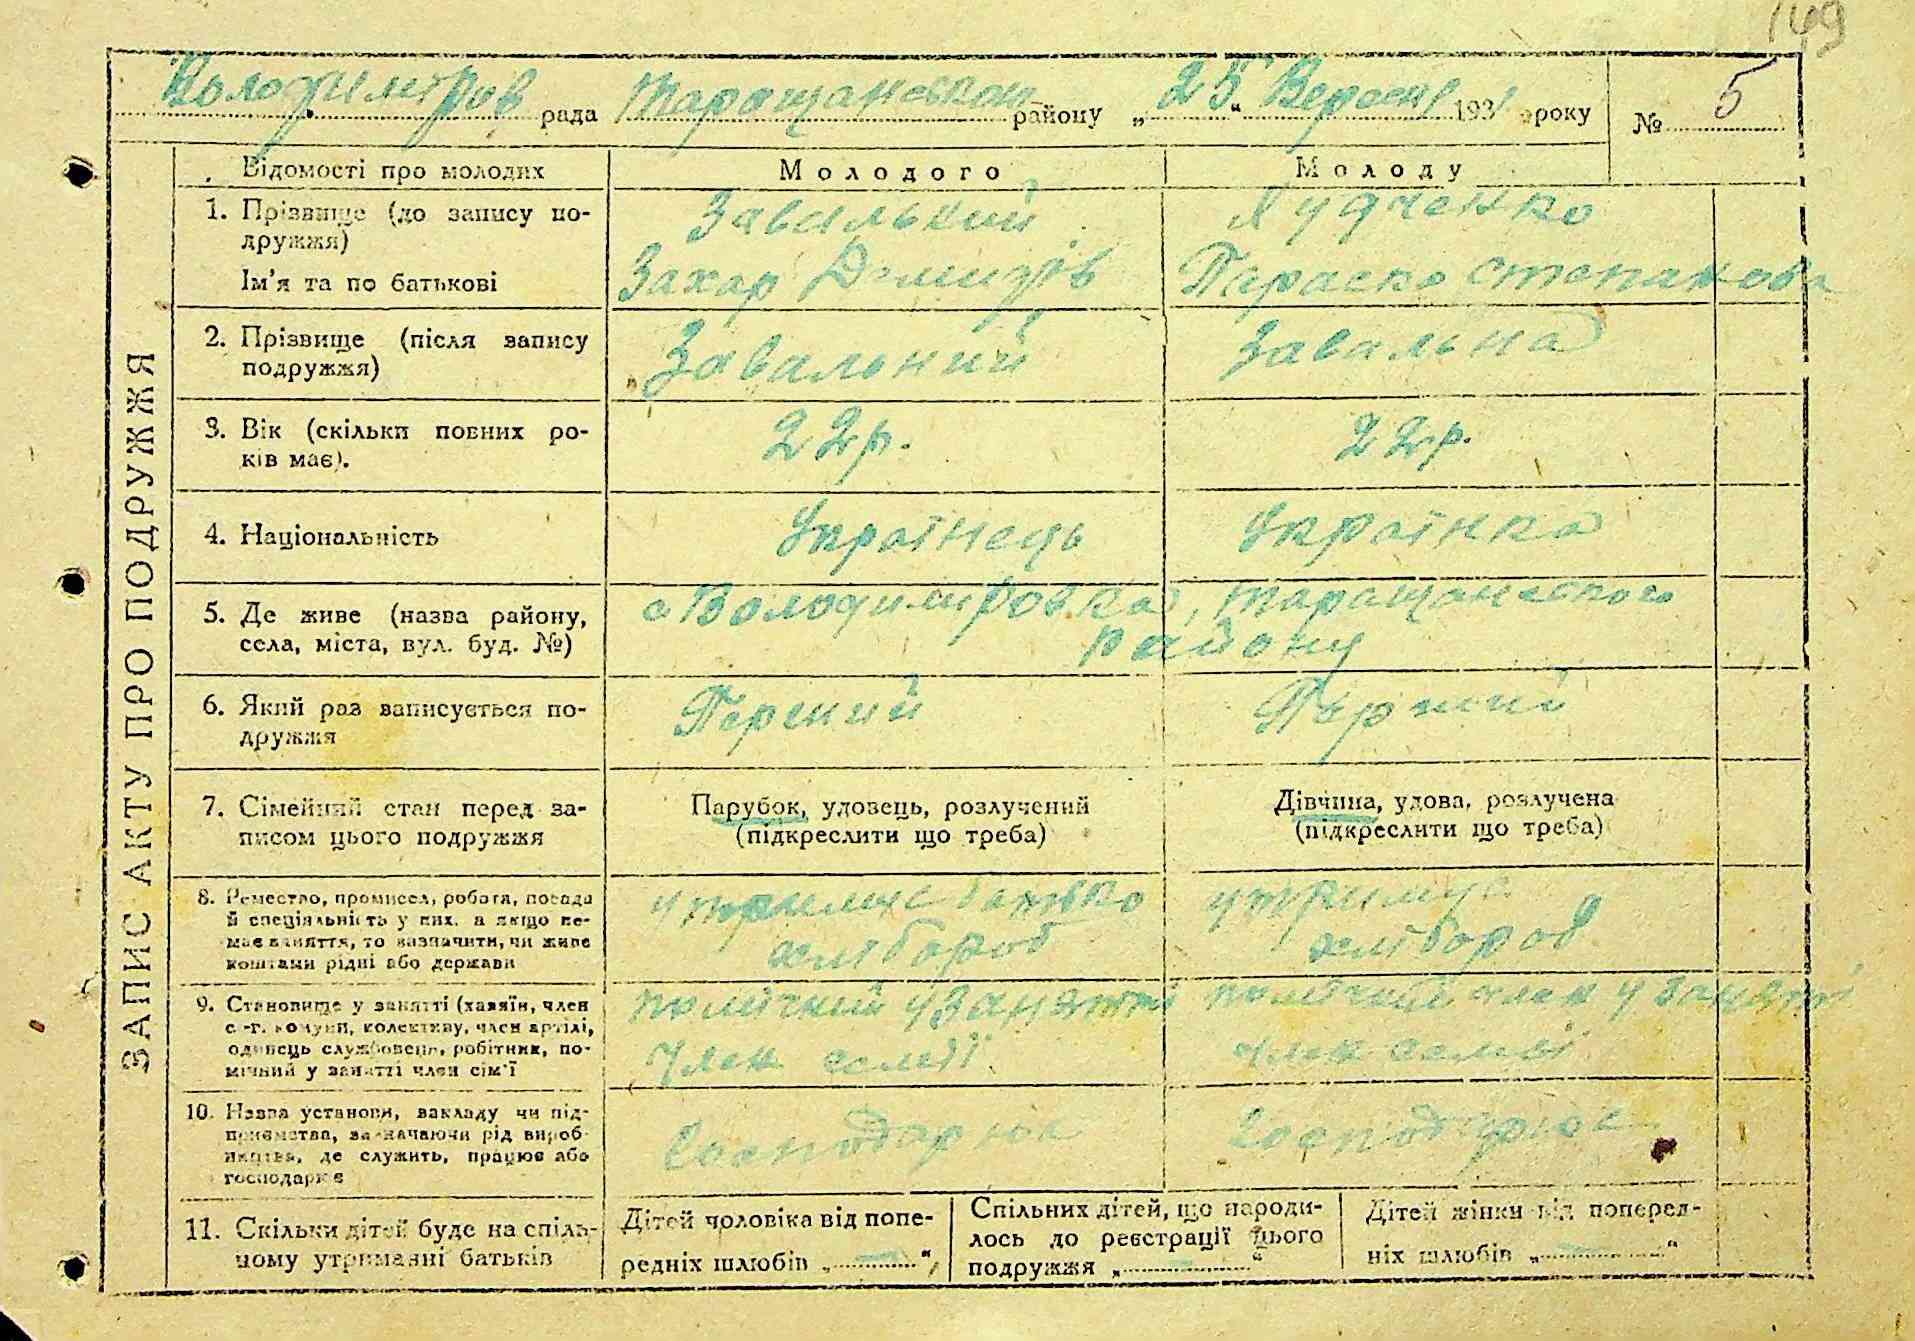 149
Володимирів рада Таращанського району „25“ Вересня 1931 року № 5
Відомості про молодих Молодого Молоду
1. Прізвище (до запису по- Завальний
дружжя)
Ім'я та по батькові Захар Демидів Параска Степанова
2. Прізвище (після запису Завальний Завальна
подружжя)
3. Вік (скільки повних ро- 22р. 22р.
ків має).
4. Національність Українець Українка
5. Де живе (назва району, с Володимировка, Таращанського
села, міста, вул. буд. №) району
6. Який раз записується по- Перший Перший
дружжя
7. Сімейний стан перед за- Парубок, удовець, розлучений Дівчина, удова, розлучена
писом цього подружжя (підкреслити що треба) (підкреслити що треба)
8. Ремество, промисел, робота, посада утримує батько утримує
й спеціяльність у них, а якщо не-
має заняття, то зазначити, чи живе хлібороб хлібороб
коштами рідні або держави
9. Становище у занятті (хазяїн, член помічний у занятті помічний член у занятті
с.-г. комуни, колективу, член артілі,
одинець службовець, робітник, по- член семії член семії
мічний у занятті член сім'ї
10. Назва установи, закладу чи під-
приємства, зазначаючи рід вироб- господарює господарює
ництва, де служить, працює або
господарює
11. Скільки дітей буде на спіль- Дітей чоловіка від попе- Спільних дітей, що народи- Дітей жінки від поперед-
ному утриманні батьків редніх шлюбів „—“, лось до реєстрації цього ніх шлюбів „—“
подружжя „—“
ЗАПИС АКТУ ПРО ПОДРУЖЖЯ